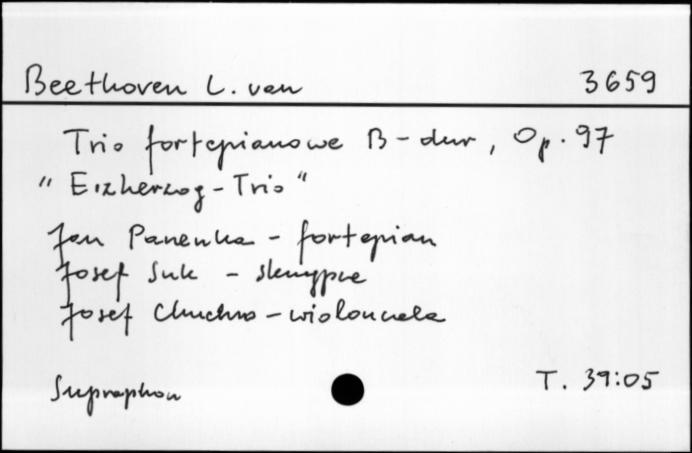 Beethoven L. van 3659
Trio fortepianowe B-dur, Op. 97
"Erzherzog-Trio"
Jan Panenka - fortepian
Josef Suk - skrzypce
Josef Chuchro - wiolonczela
Supraphon T. 39:05